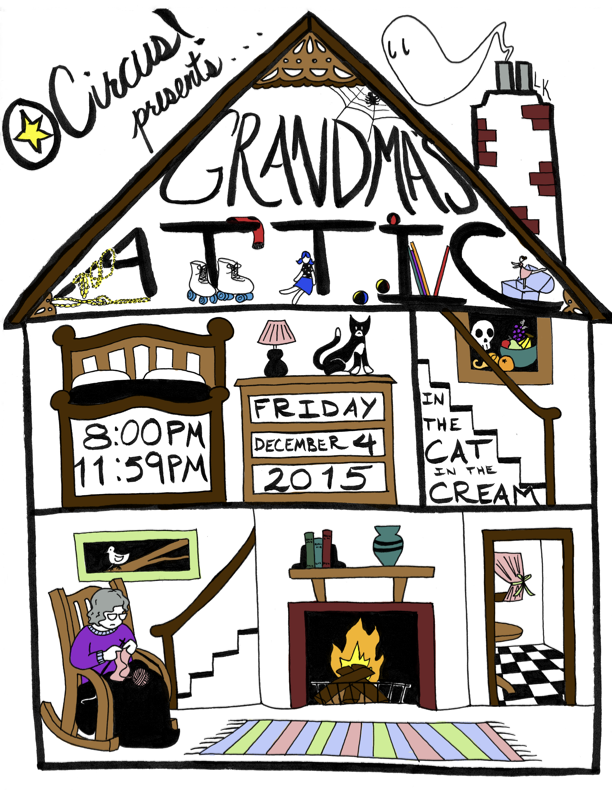 OCircus!
presents...
GRANDMA'S
ATTIC
LK
8:00PM
11:59PM
FRIDAY
DECEMBER 4
2015
IN
THE
CAT
IN THE
CREAM